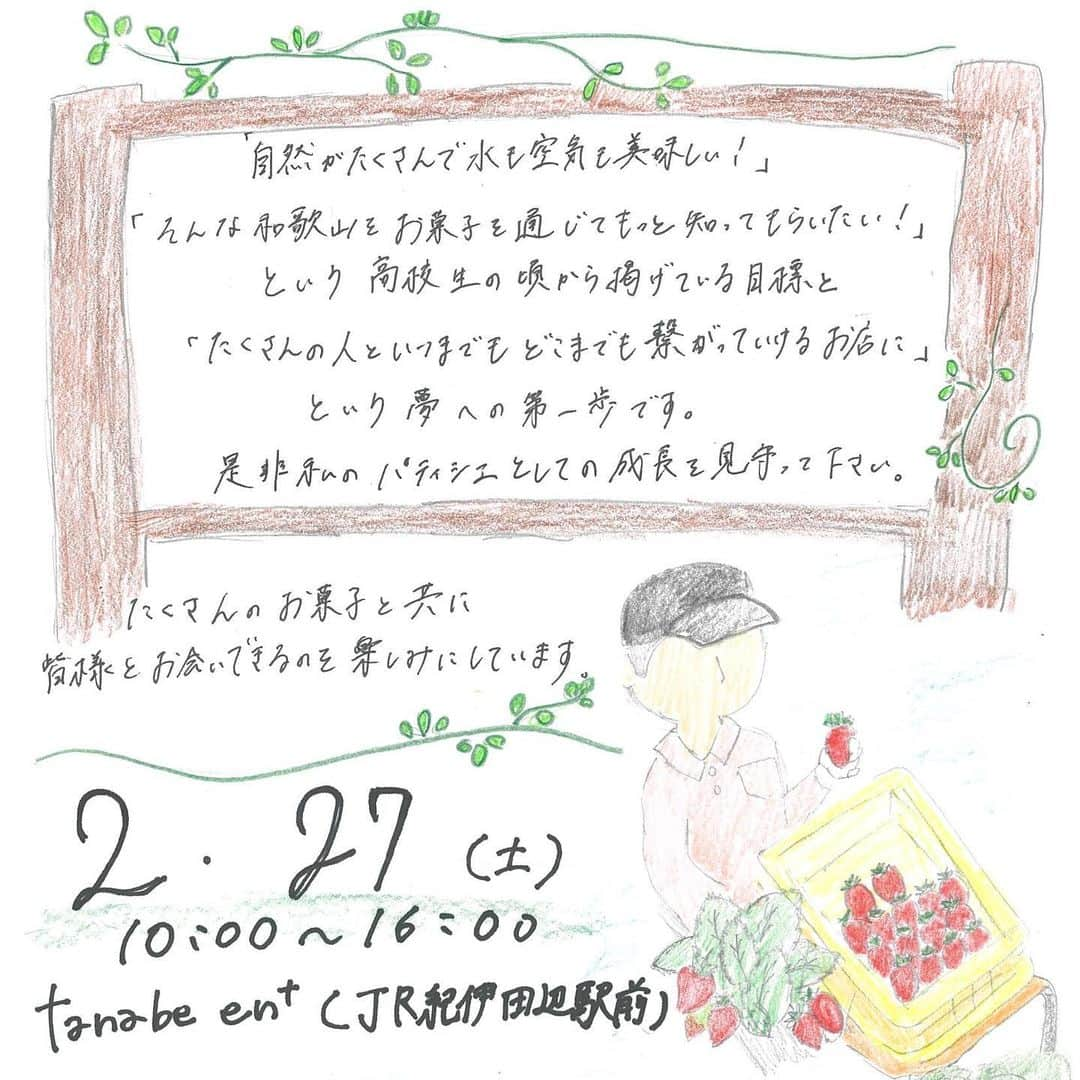 「自然がたくさんで水も空気も美味しい!」
「そんな和歌山をお菓子を通じてもっと知ってもらいたい!」
という高校生の頃から掲げている目標と
「たくさんの人といつまでもどこまでも繋がっていけるお店に」
という夢への第一歩です。
是非私のパティシエとしての成長を見守って下さい。
たくさんのお菓子と共に
皆様とお会いできるのを楽しみにしています。
2.27(土)
10:00~16:00
tanabe en+(JR紀伊田辺駅前)